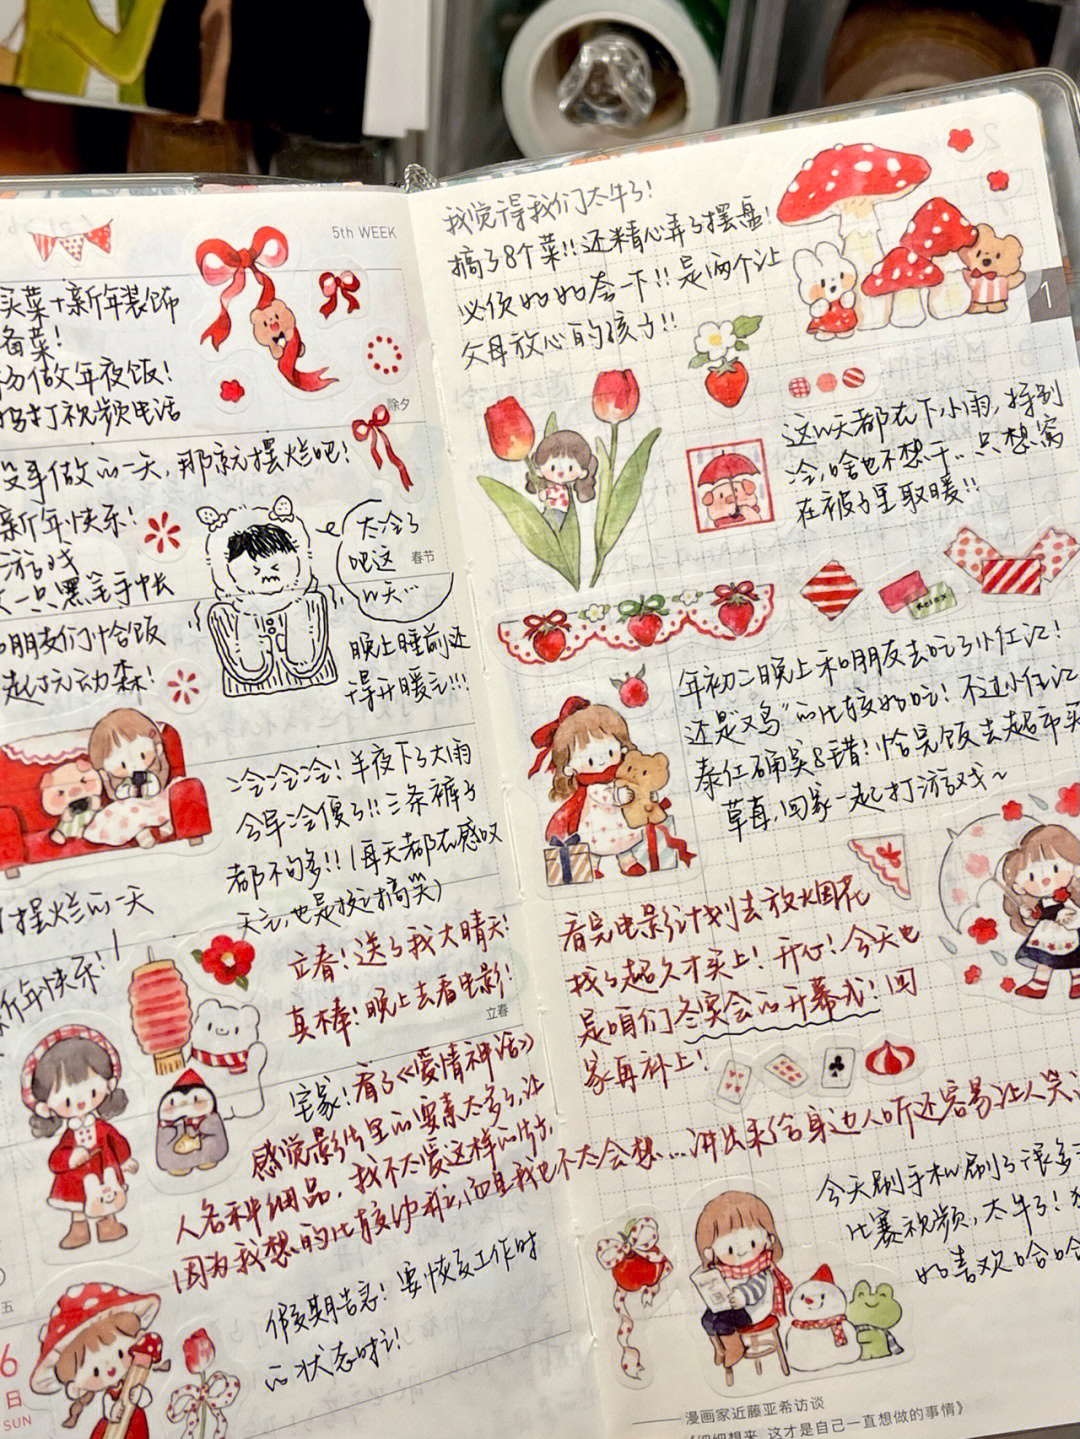 5th WEEK
买菜+新年装饰
备菜!
做年夜饭!
打视频电话
除夕
没事做的一天,那就摆烂吧!
新年快乐!
游戏
一只黑笔手帐
朋友们恰饭
起玩动森!
太冷了
吧这
两天…
春节
晚上睡前还
得开暖气!!!
冷冷冷!半夜下了大雨
今早冷傻了!!三条裤子
都不够多!!(每天都在感叹
天气,也是挺搞笑)
摆烂的一天
新年快乐!
立春!送了我大晴天!
真棒!晚上去看电影!
立春
宅家!看了《爱情神话》
感觉影片里的要素太多了,让
人各种细品,我不太爱这样的片子,
因为我想的比较少,而且我也不太会想…讲出来给身边人听还容易让人笑
五
假期告急!要恢复工作时
的状态啦!
6
日
SUN
我觉得我们太牛了!
搞了8个菜!!还精心弄了摆盘!
必须好好夸一下!!是两个让
父母放心的孩子!!
1
这两天都在下小雨,特别
冷,啥也不想干..只想窝
在被子里取暖!!
Relax
年初二晚上和朋友去吃了小红记!
还是义乌的比较好吃!不过小红记
泰红确实8错!恰完饭去超市买
草莓,回家一起打游戏~
看完电影计划去放烟花
找了超久才买上!开心!今天也
是咱们冬奥会的开幕式!回
家再补上!
今天刷手机刷了很多
比赛视频,太牛了!
好喜欢哈哈
——漫画家近藤亚希访谈
《细细想来,这才是自己一直想做的事情》